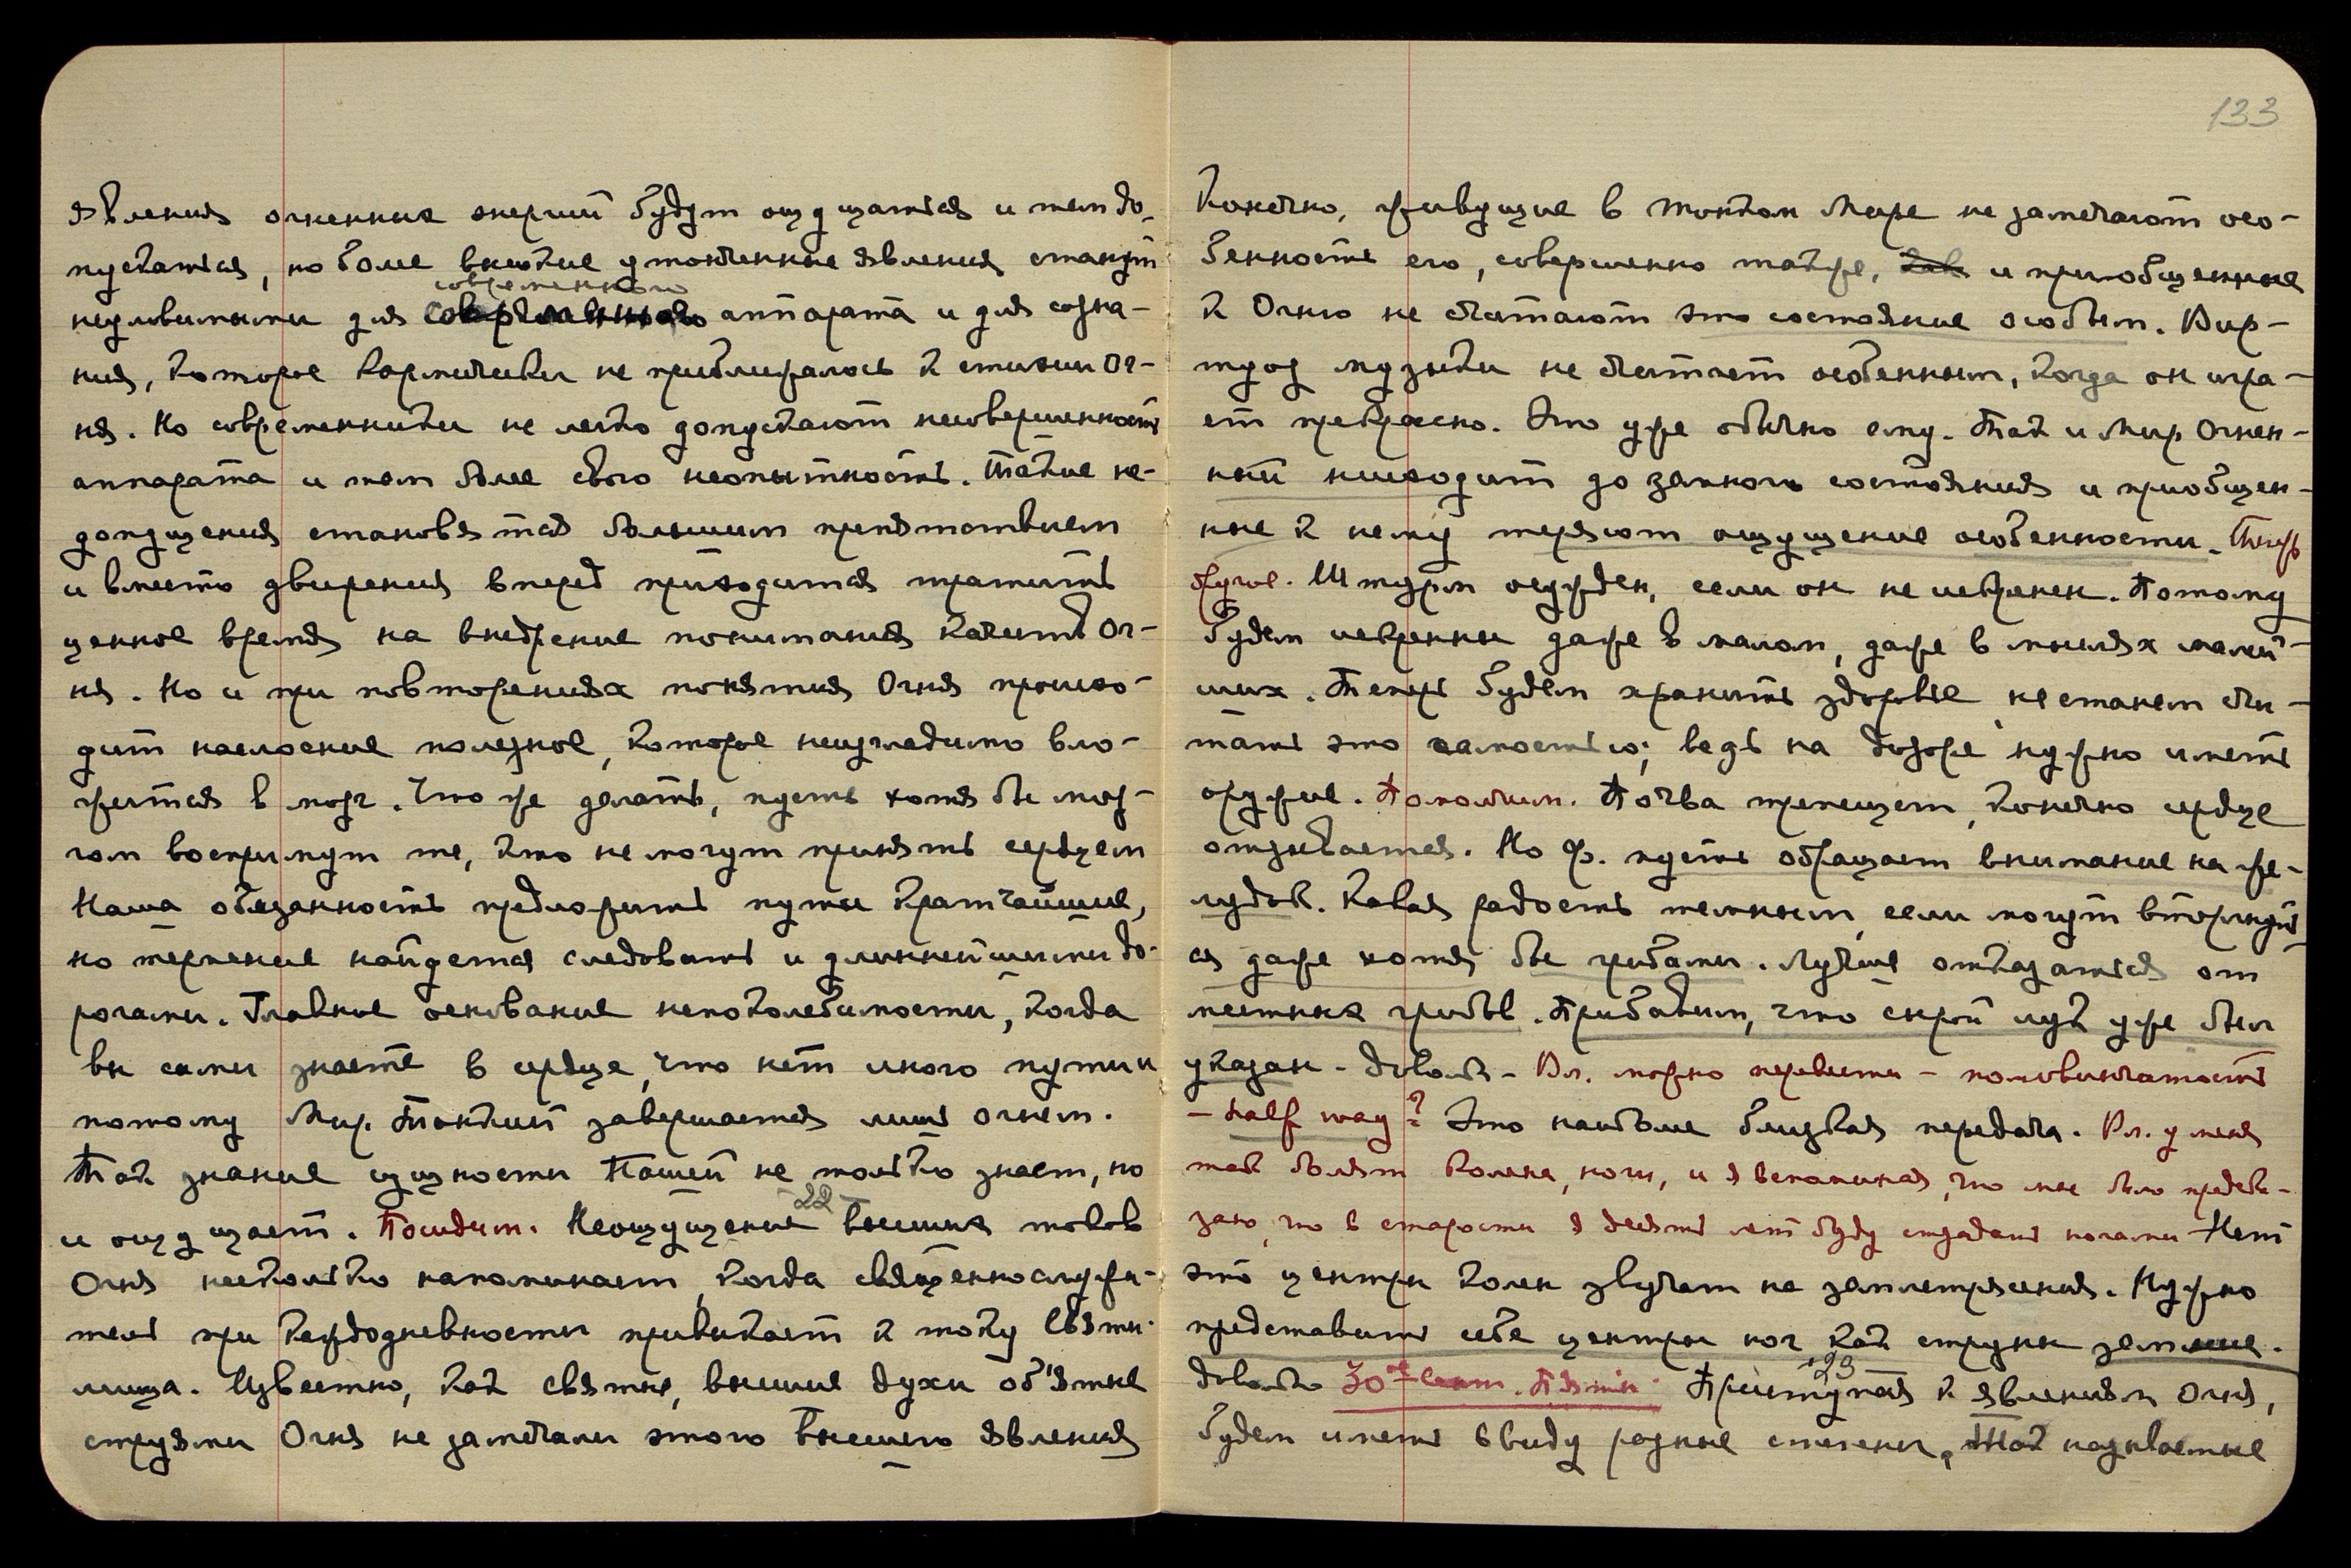 явления огненных энергий будут ощущаться и тем до-
пускаться, но более высокие утонченные явления станут
современного
неуловимыми для современного аппарата и для созна-
ния, которое кармически не приближалось к стихии Ог-
ня. Но современники не легко допускают несовершенность
аппарата и тем более свою неопытность. Такие не-
допущения становятся большим препятствием
и вместо движения вперед приходится тратить
ценное время на внедрение понимания качеств Ог-
ня. Но и при повторениях понятия Огня происхо-
дит наслоение полезное, которое неизгладимо вло-
жится в мозг. Что же делать, пусть хотя бы моз-
гом воспримут те, кто не могут принять сердцем
Наша обязанность предложить пути кратчайшие,
но терпение найдется следовать и длиннейшими до-
рогами. Главное основание непоколебимости, когда
вы сами знаете в сердце, что нет иного пути и
потому Мир Тонкий завершается лишь огнем.
Так знание сущности Нашей не только знает, но
22
и ощущает. Посидим. Неощущение высших токов
Огня несколько напоминает, когда священнослужи-
тель при каждодневности привыкает к току Святи-
лища. Известно, как святые, высшие духи об'ятые
струями Огня не замечали этого внешнего явления
133
Конечно, живущие в тонком Мире не замечают осо-
бенность его, совершенно также, как и приобщенные
к Огню не считают это состояние особым. Вир-
туоз музыки не считает особенным, когда он игра-
ет прекрасно. Это уже обычно ему. Так и Мир Огнен-
ный нисходит до земного состояния и приобщен-
ные к нему теряют ощущение особенности. Теперь
другое. Штурм осужден, если он не искренен. Потому
будем искренны даже в малом, даже в мыслях малей-
ших. Теперь будем хранить здоровье, не станем счи-
тать это самостью; ведь на дозоре нужно иметь
оружие. Помолчим. Почва трепещет, конечно сердце
отзывается. Но Ф. пусть обращает внимание на же-
лудок. Какая радость темным, если могут вторгнуть
ся даже хотя бы грибами. Лучше отказаться от
местных грибов. Прибавим, что сырой лук уже был
указан - Довольно - Вл. можно перевести - половинчатость
- half way? Это наиболее близкая передача. Вл. у меня
так болят колена, ноги, и я вспоминаю, что мне было предска-
зано, что в старости я десять лет буду страдать ногами - Нет
это центры колен звучат на землетрясения. Нужно
представить себе центры ног как струны земные.
23
Довольно 30ое Сент. Пятн. Приступая к явлениям Огня,
будем иметь ввиду разные степени. Так называемые